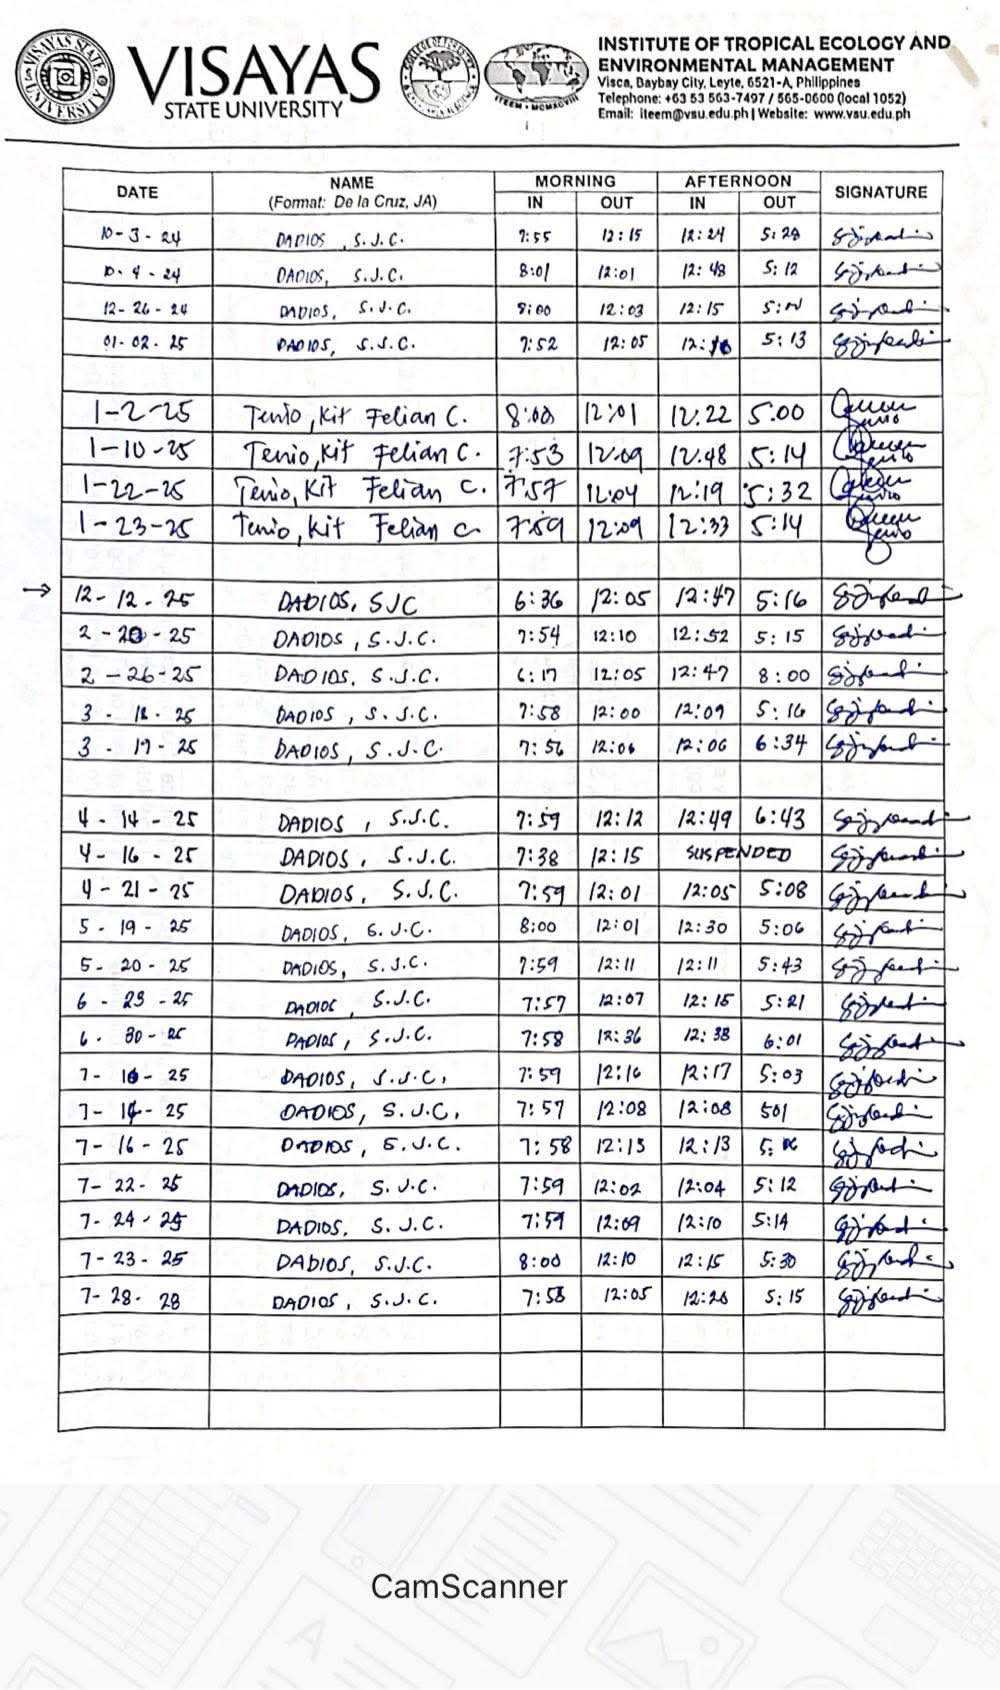 VISAYAS
STATE UNIVERSITY
INSTITUTE OF TROPICAL ECOLOGY AND
ENVIRONMENTAL MANAGEMENT
Visca, Baybay City, Leyte, 6521-A, Philippines
Telephone: +63 53 563-7497 / 565-0600 (local 1052)
Email: iteem@vsu.edu.ph | Website: www.vsu.edu.ph
DATE NAME MORNING AFTERNOON SIGNATURE
(Format: De la Cruz, JA) IN OUT IN OUT
10-3-24 DADIOS, S.J.C. 7:55 12:15 12:24 5:28
10-4-24 DADIOS, S.J.C. 8:01 12:01 12:48 5:12
12-26-24 DADIOS, S.J.C. 8:00 12:03 12:15
01-02-25 DADIOS, S.J.C. 7:52 12:05 5:13
1-2-25 Tenio, Kit Felian C. 8:00 12:01 12:22 5:00
1-10-25 Tenio, Kit Felian C. 7:53 12:09 12:48 5:14
1-22-25 Tenio, Kit Felian C. 7:57 12:04 12:19 5:32
1-23-25 Tenio, Kit Felian C 7:59 12:09 12:33 5:14
→ 12-12-25 DADIOS, SJC 6:36 12:05 12:47 5:16
2-20-25 DADIOS, S.J.C. 7:54 12:10 12:52 5:15
2-26-25 DADIOS, S.J.C. 6:17 12:05 12:47 8:00
3-18-25 DADIOS, S.J.C. 7:58 12:00 12:09 5:16
3-19-25 DADIOS, S.J.C. 7:56 12:06 12:06 6:34
4-14-25 DADIOS, S.J.C. 7:59 12:12 12:49 6:43
4-16-25 DADIOS, S.J.C. 7:38 12:15 SUSPENDED
4-21-25 DADIOS, S.J.C. 7:59 12:01 12:05 5:08
5-19-25 DADIOS, S.J.C. 8:00 12:01 12:30 5:06
5-20-25 DADIOS, S.J.C. 7:59 12:11 12:11 5:43
6-23-25 DADIOS, S.J.C. 7:57 12:07 12:15 5:21
6-30-25 DADIOS, S.J.C. 7:58 12:36 12:38 6:01
7-10-25 DADIOS, S.J.C. 7:59 12:16 12:17 5:03
7-14-25 DADIOS, S.J.C. 7:57 12:08 12:08 501
7-16-25 DADIOS, S.J.C. 7:58 12:13 12:13
7-22-25 DADIOS, S.J.C. 7:59 12:02 12:04 5:12
7-24-25 DADIOS, S.J.C. 7:59 12:09 12:10 5:14
7-23-25 DADIOS, S.J.C. 8:00 12:10 12:15 5:30
7-28-28 DADIOS, S.J.C. 7:58 12:05 12:26 5:15
CamScanner